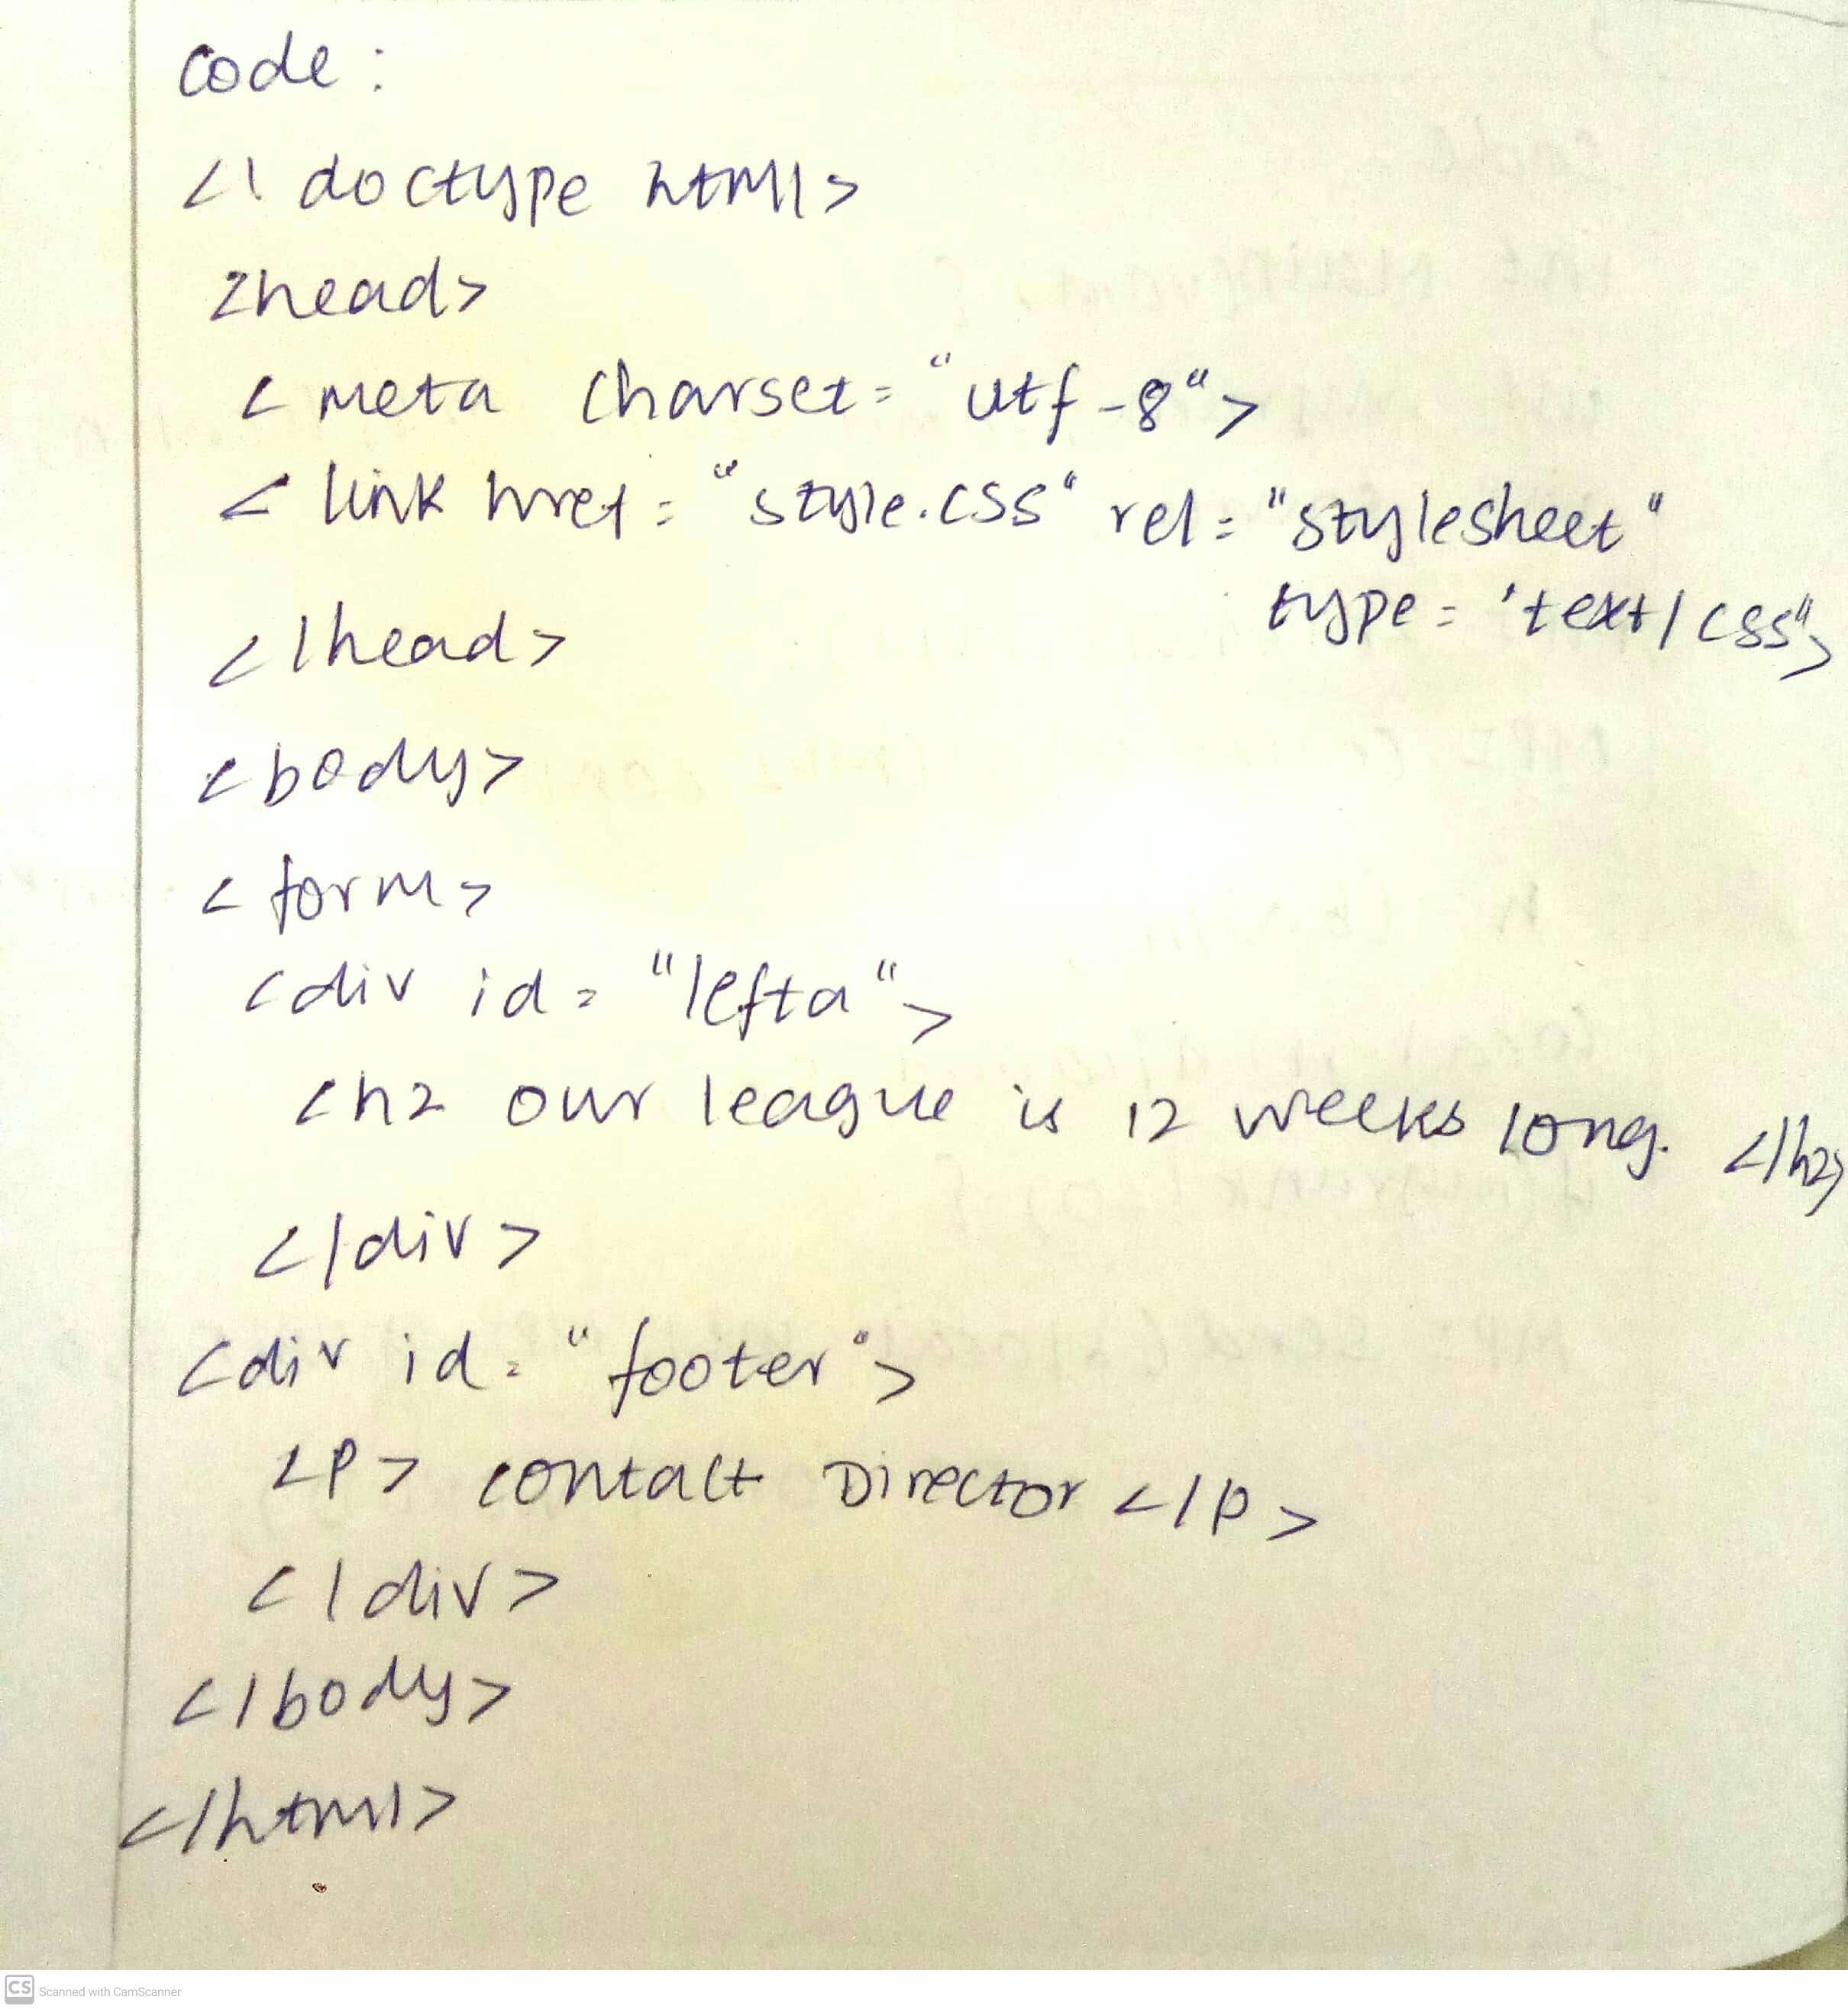 code :
<! doctype html>
<head>
< meta charset = "utf-8">
< link href = "style.css" rel = "stylesheet"
type = 'text/css">
</head>
<body>
< form>
<div id = "lefta">
<h2 our league is 12 weeks long. </h2>
</div>
<div id = "footer">
<p> contact Director </p>
</div>
</body>
</html>
CS Scanned with CamScanner